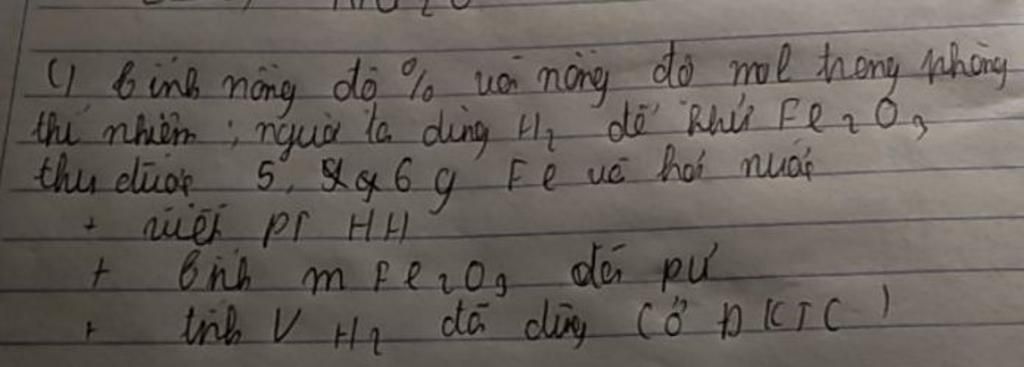 c) tính nồng độ % với nồng độ mol trong phòng
thí nhiệm, người ta dùng H₂ để khử Fe₂O₃
thu được 5, 6 g Fe và hơi nước
+ viết PT HH
+ tính m Fe₂O₃ đã pư
+ tính V H₂ đã dùng (ở ĐKTC)